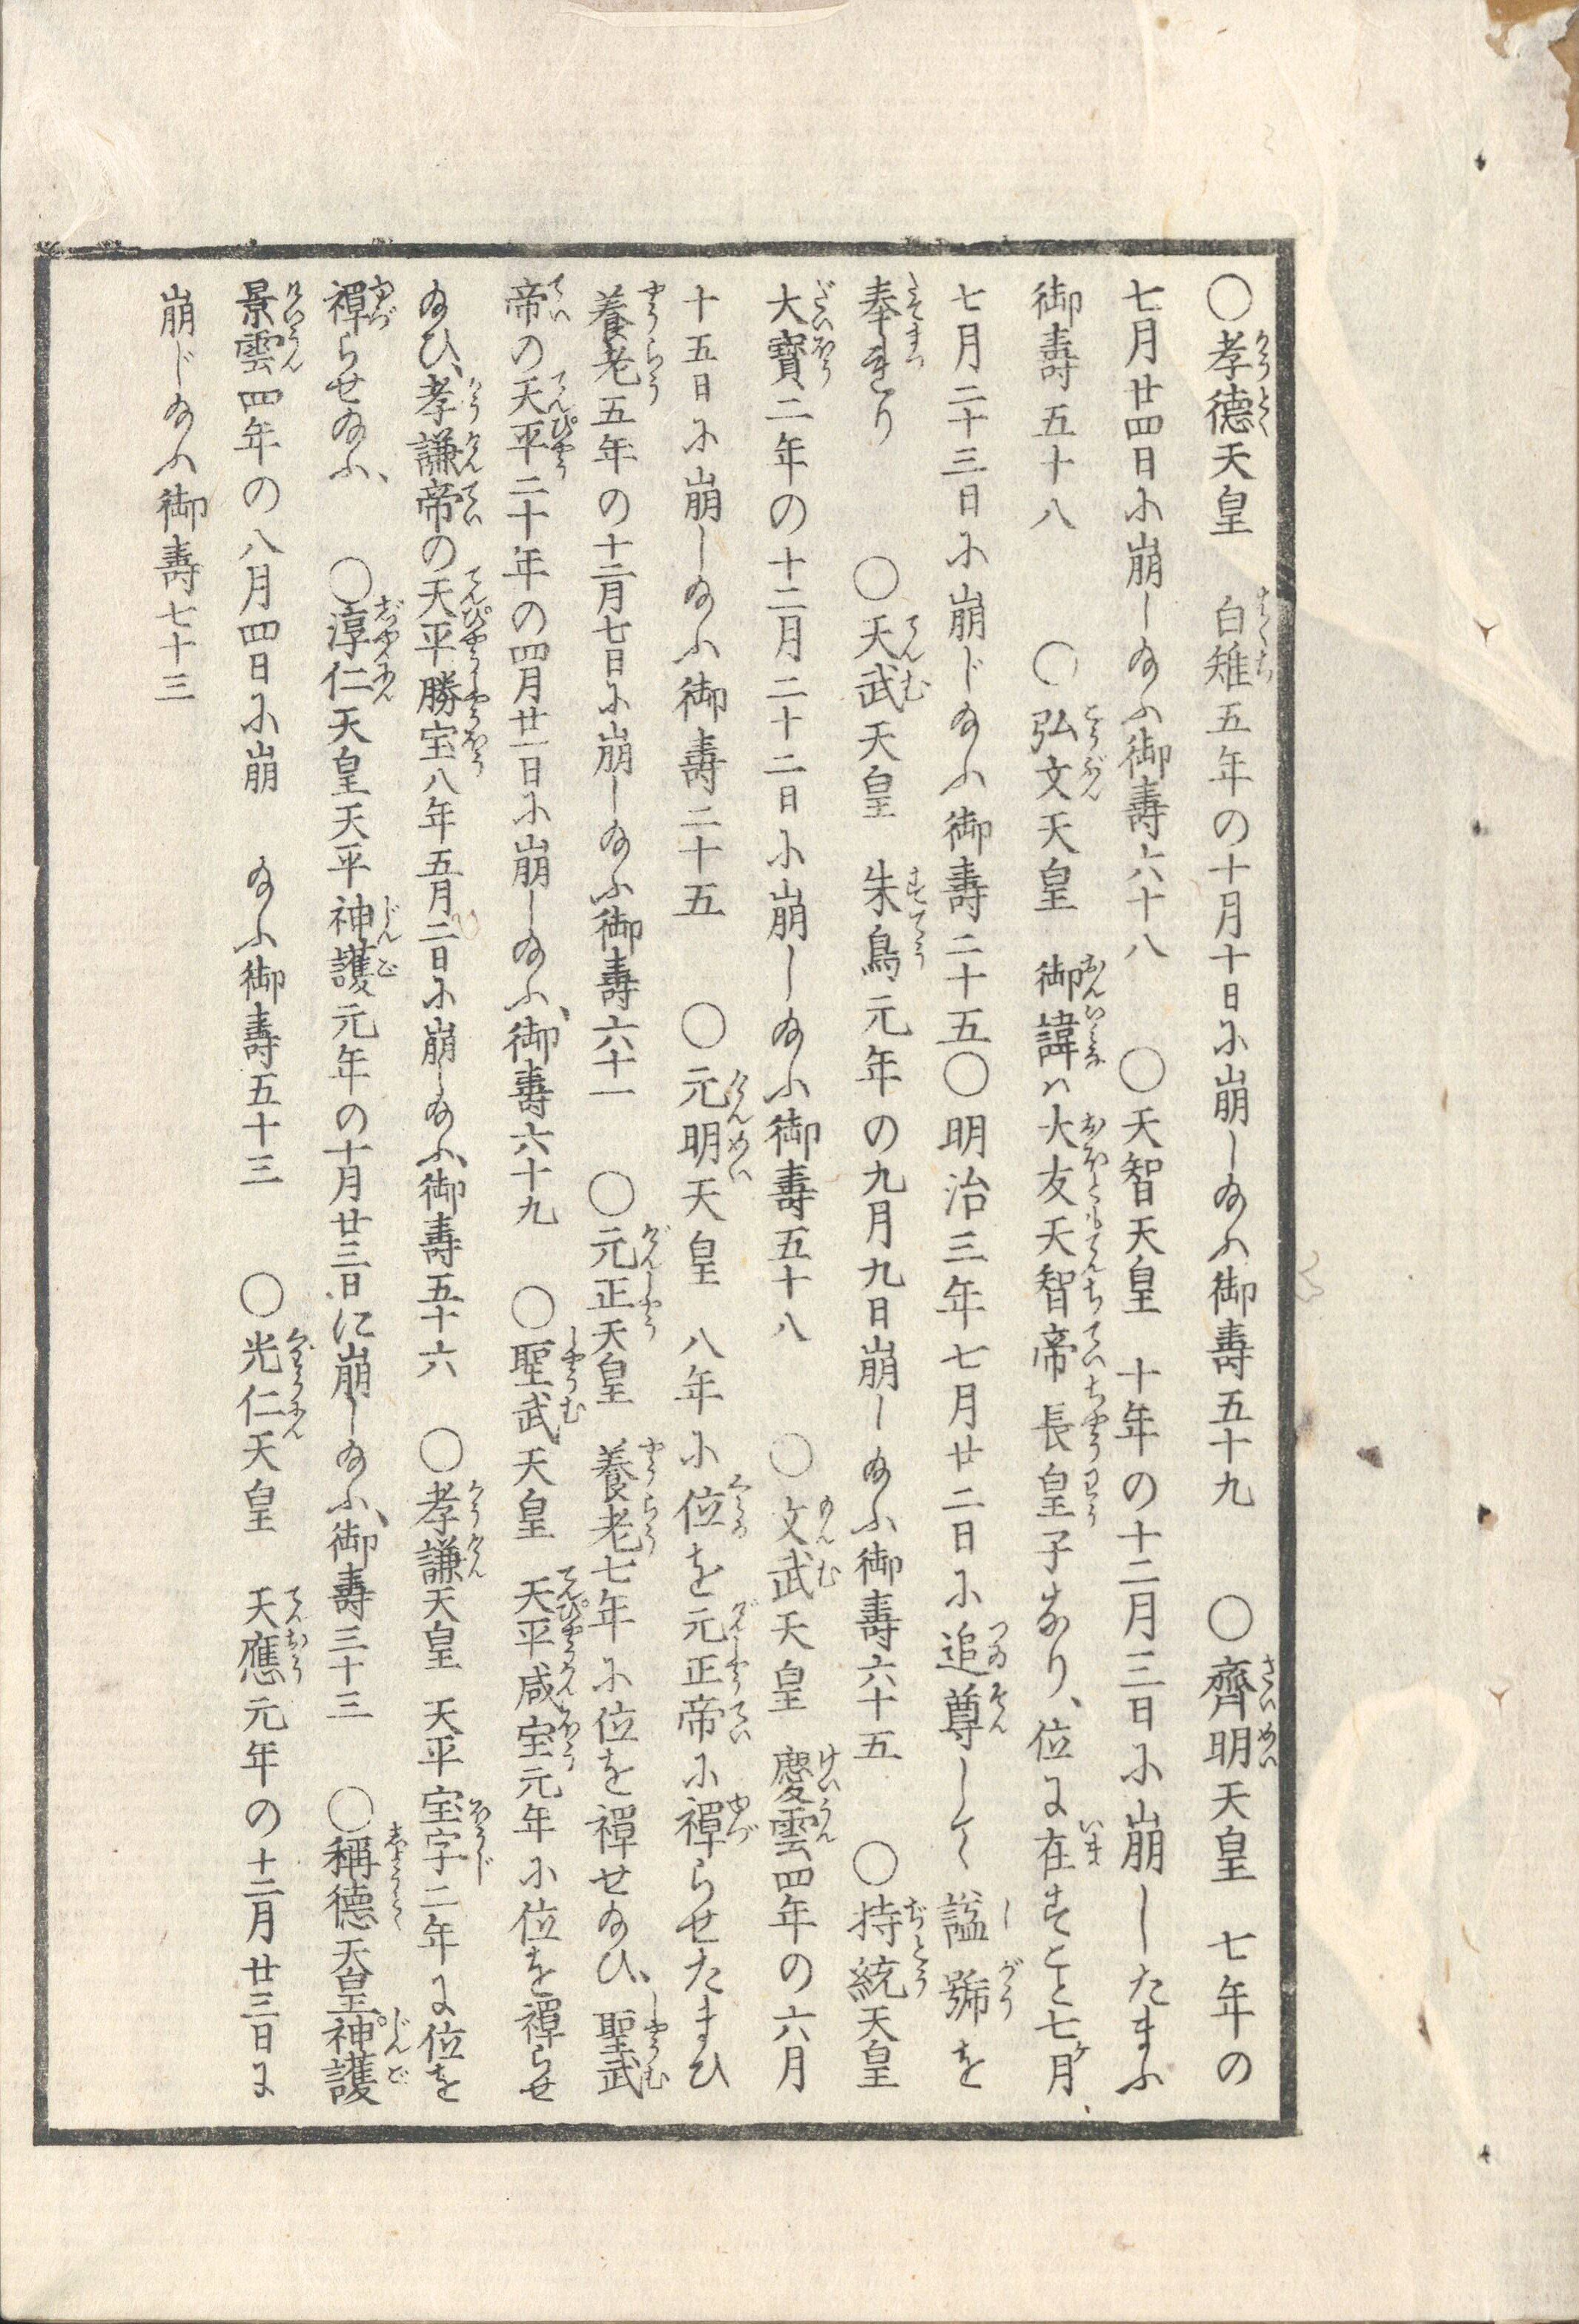 〇孝德天皇　白雉五年の十月十日に崩し給ふ御壽五十九　〇齊明天皇　七年の
七月廿四日に崩し給ふ御壽六十八　〇天智天皇　十年の十二月三日に崩したまふ
御壽五十八　〇弘文天皇　御諱ハ大友天智帝長皇子なり、位に在すこと七ケ月、
七月二十三日に崩じ給ふ御壽二十五〇明治三年七月廿二日に追尊して諡號を
奉れり　〇天武天皇　朱鳥元年の九月九日崩し給ふ御壽六十五　〇持統天皇
大寶二年の十二月二十二日に崩し給ふ御壽五十八　〇文武天皇　慶雲四年の六月
十五日に崩し給ふ御壽二十五　〇元明天皇　八年に位を元正帝に禪らせたまひ
養老五年の十二月七日に崩し給ふ御壽六十一　〇元正天皇　養老七年に位を禪せ給ひ、聖武
帝の天平二十年の四月廿一日に崩し給ふ、御壽六十九　〇聖武天皇　天平咸宝元年に位を禪らせ
給ひ、孝謙帝の天平勝宝八年五月二日に崩し給ふ、御壽五十六　〇孝謙天皇　天平宝字二年に位を
禪らせ給ふ、　〇淳仁天皇天平神護元年の十月廿三日に崩し給ふ、御壽三十三　〇稱德天皇神護
景雲四年の八月四日に崩　給ふ御壽五十三　〇光仁天皇　天應元年の十二月廿三日に
崩じ給ふ御壽七十三